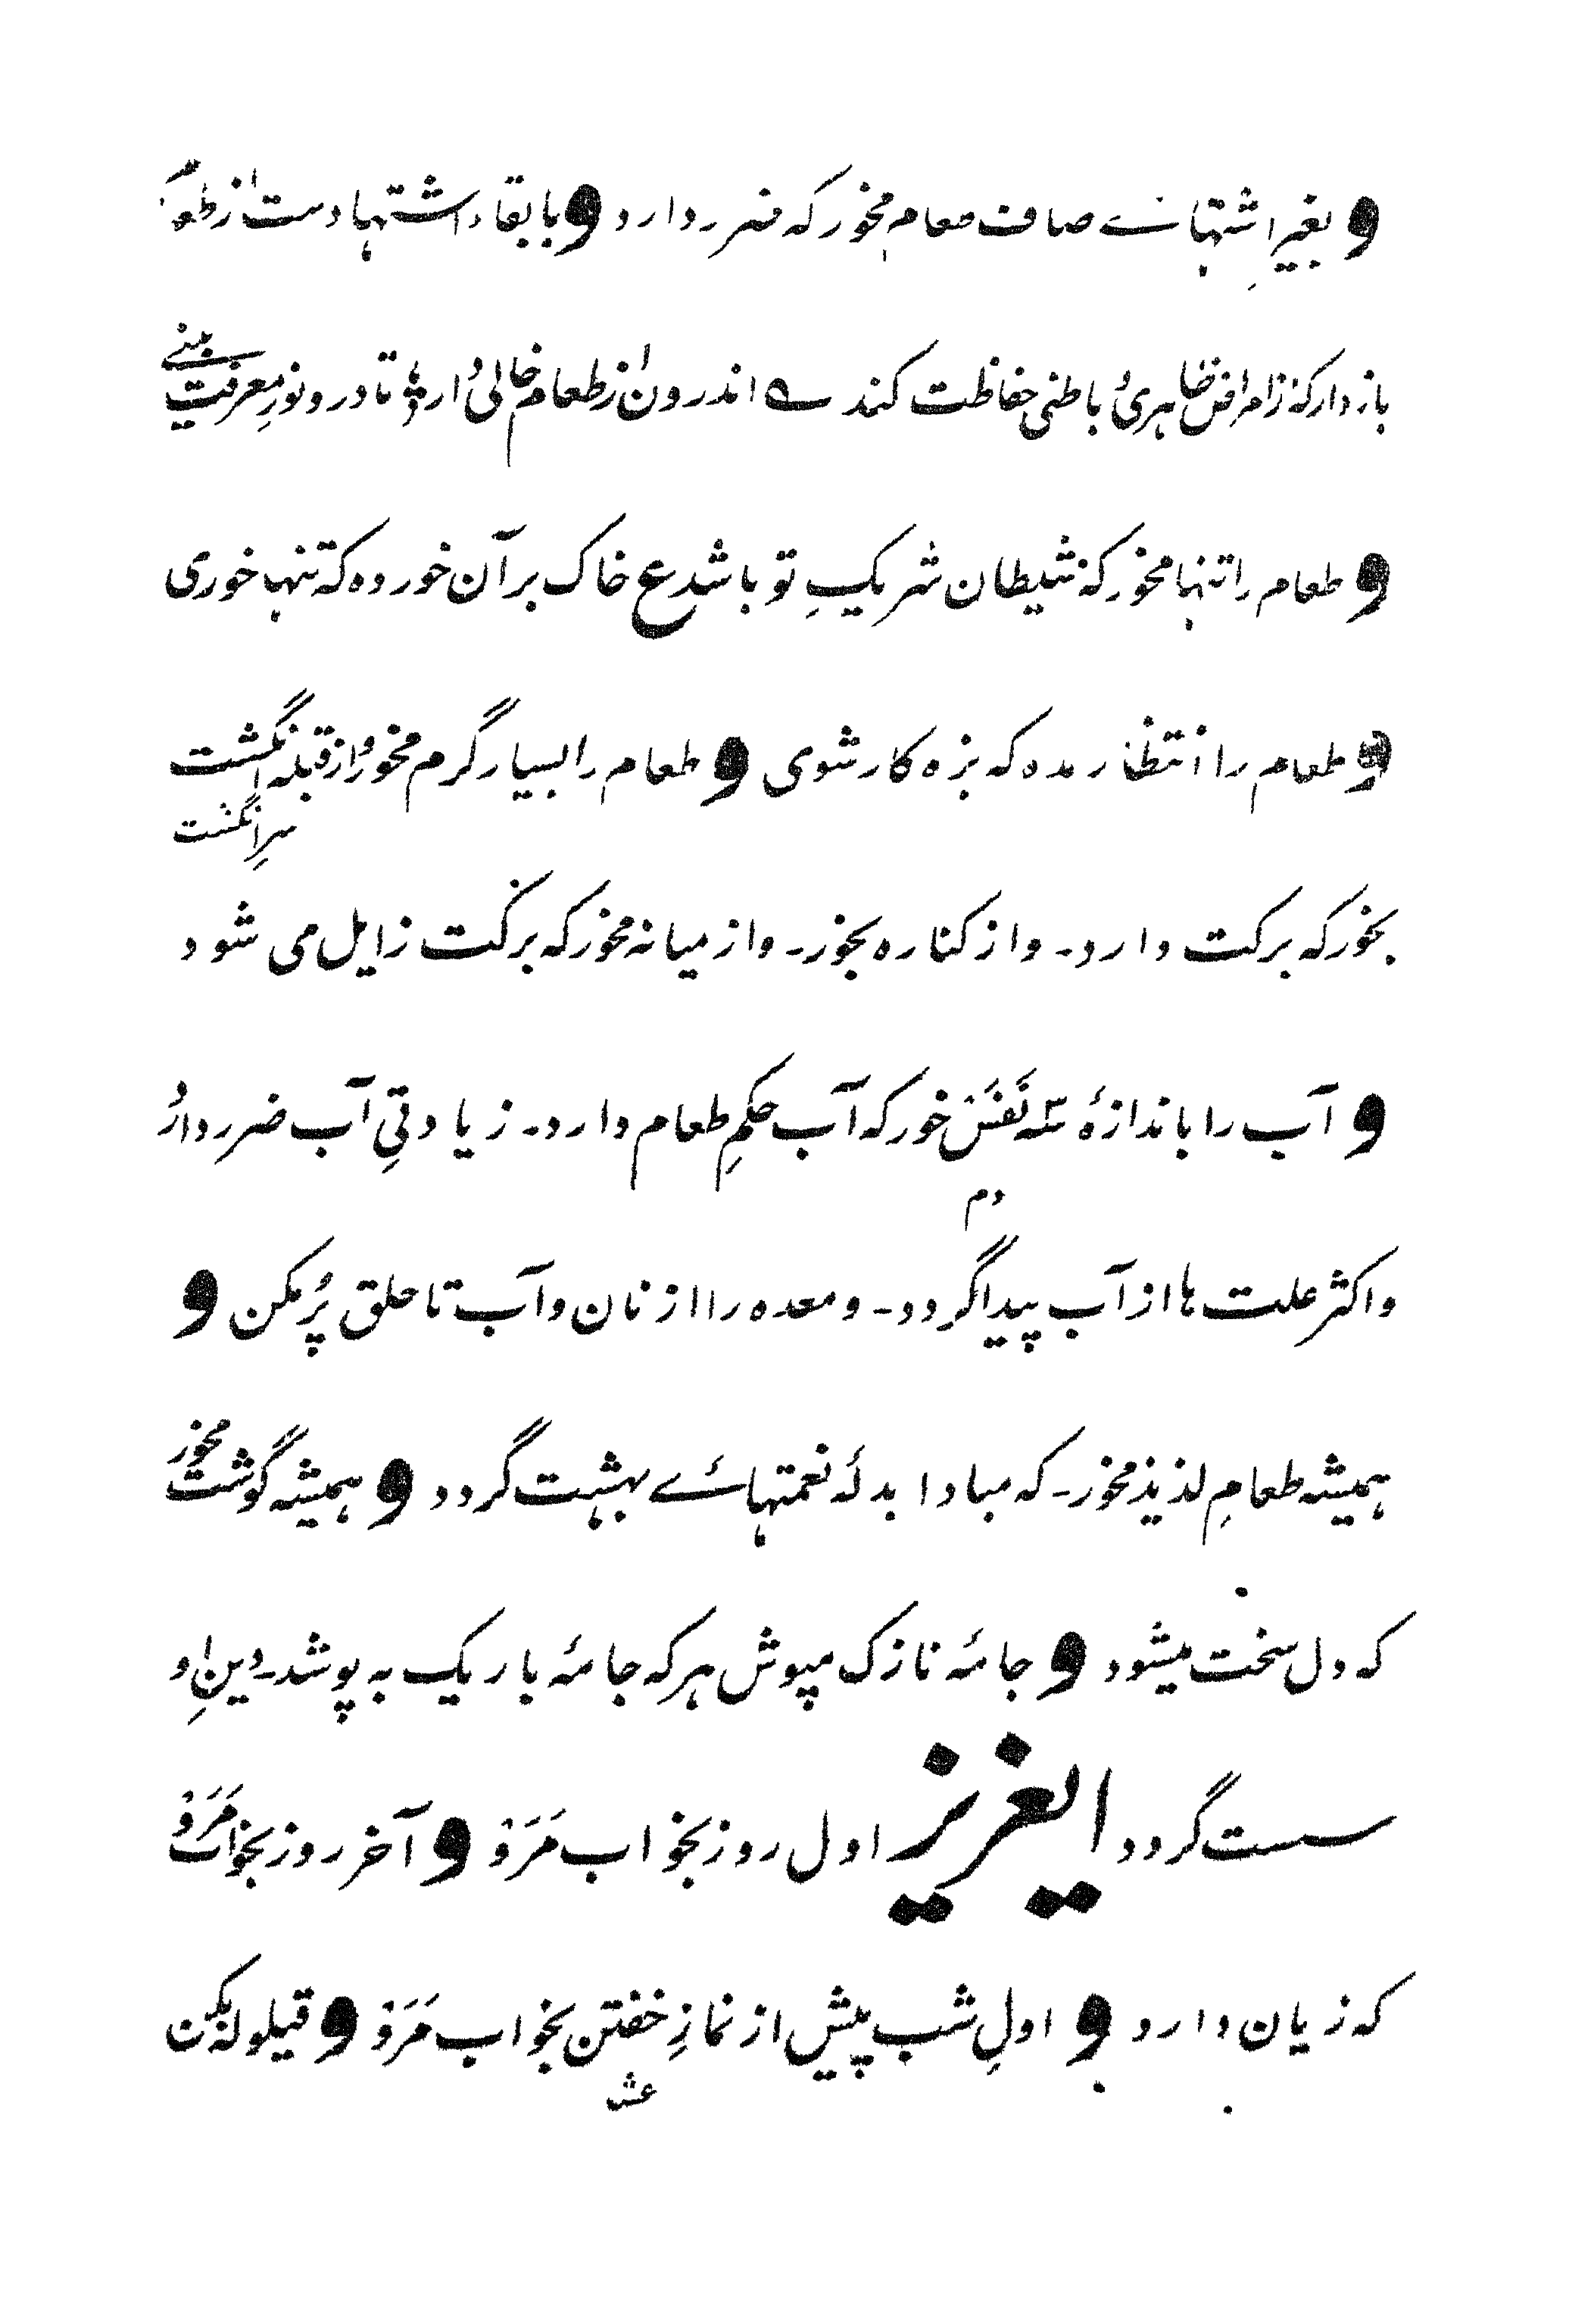 و بغیر اشتہائے صاف طعام مخور کہ ضرر دارد و با بقاء اشتہا دست از طعام
باز دار کہ از امراض ظاہری و باطنی حفاظت کند ے اندرون از طعام خالی دار * تا درو نور معرفت بینے
و طعام را تنہا مخور کہ شیطان شریکِ تو باشد ع خاک بر آن خورده کہ تنہا خوری
و طعام را انتظار مده کہ بزه کار شوی و طعام را بسیار گرم مخور و از قبلہ انگشت
سرِ انگشت
بخور کہ برکت دارد۔ و از کناره بخور۔ و از میانہ مخور کہ برکت زایل می شود
و آب را باندازۂ سہ نَفَس خور کہ آب حکمِ طعام دارد۔ زیادتیِ آب ضرر دارد
دم
و اکثر علت ہا از آب پیدا گردد۔ و معده را از نان و آب تا حلق پُر مکن و
ہمیشہ طعامِ لذیذ مخور۔ کہ مبادا بدلۂ نعمتہائے بہشت گردد و ہمیشہ گوشت مخور
کہ دل سخت میشود و جامۂ نازک مپوش ہر کہ جامۂ باریک بہ پوشد۔ دینِ او
سست گردد ایعزیز اول روز بخواب مَرَوْ و آخر روز بخواب مَرَوْ
کہ زیان دارد و اولِ شب پیش از نمازِ خفتن بخواب مَرَوْ و قیلولہ مکن